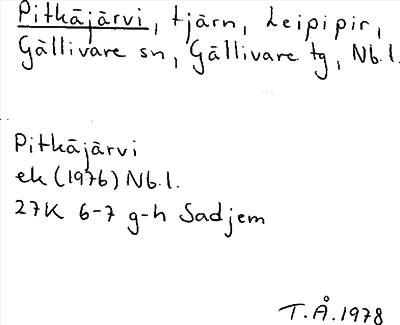 Pitkäjärvi, tjärn, Leipipir,
Gällivare sn, Gällivare tg, Nb.l.
Pitkäjärvi
ek (1976) Nb.l.
27K 6-7 g-h Sadjem
T.Å.1978